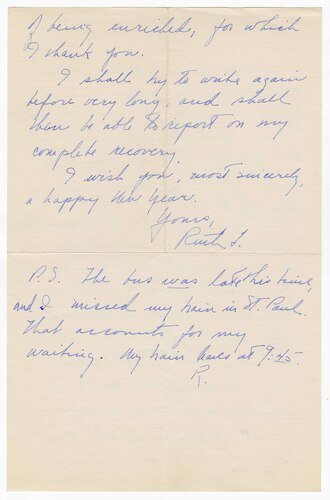 of being enriched, for which
I thank you.
I shall try to write again
before very long, and shall
then be able to report on my
complete recovery.
I wish you, most sincerely,
a happy New Year.
Yours,
Ruth F.
P.S. The bus was late this time,
and I missed my train in St. Paul.
That accounts for my
waiting. My train leaves at 9:45.
R.